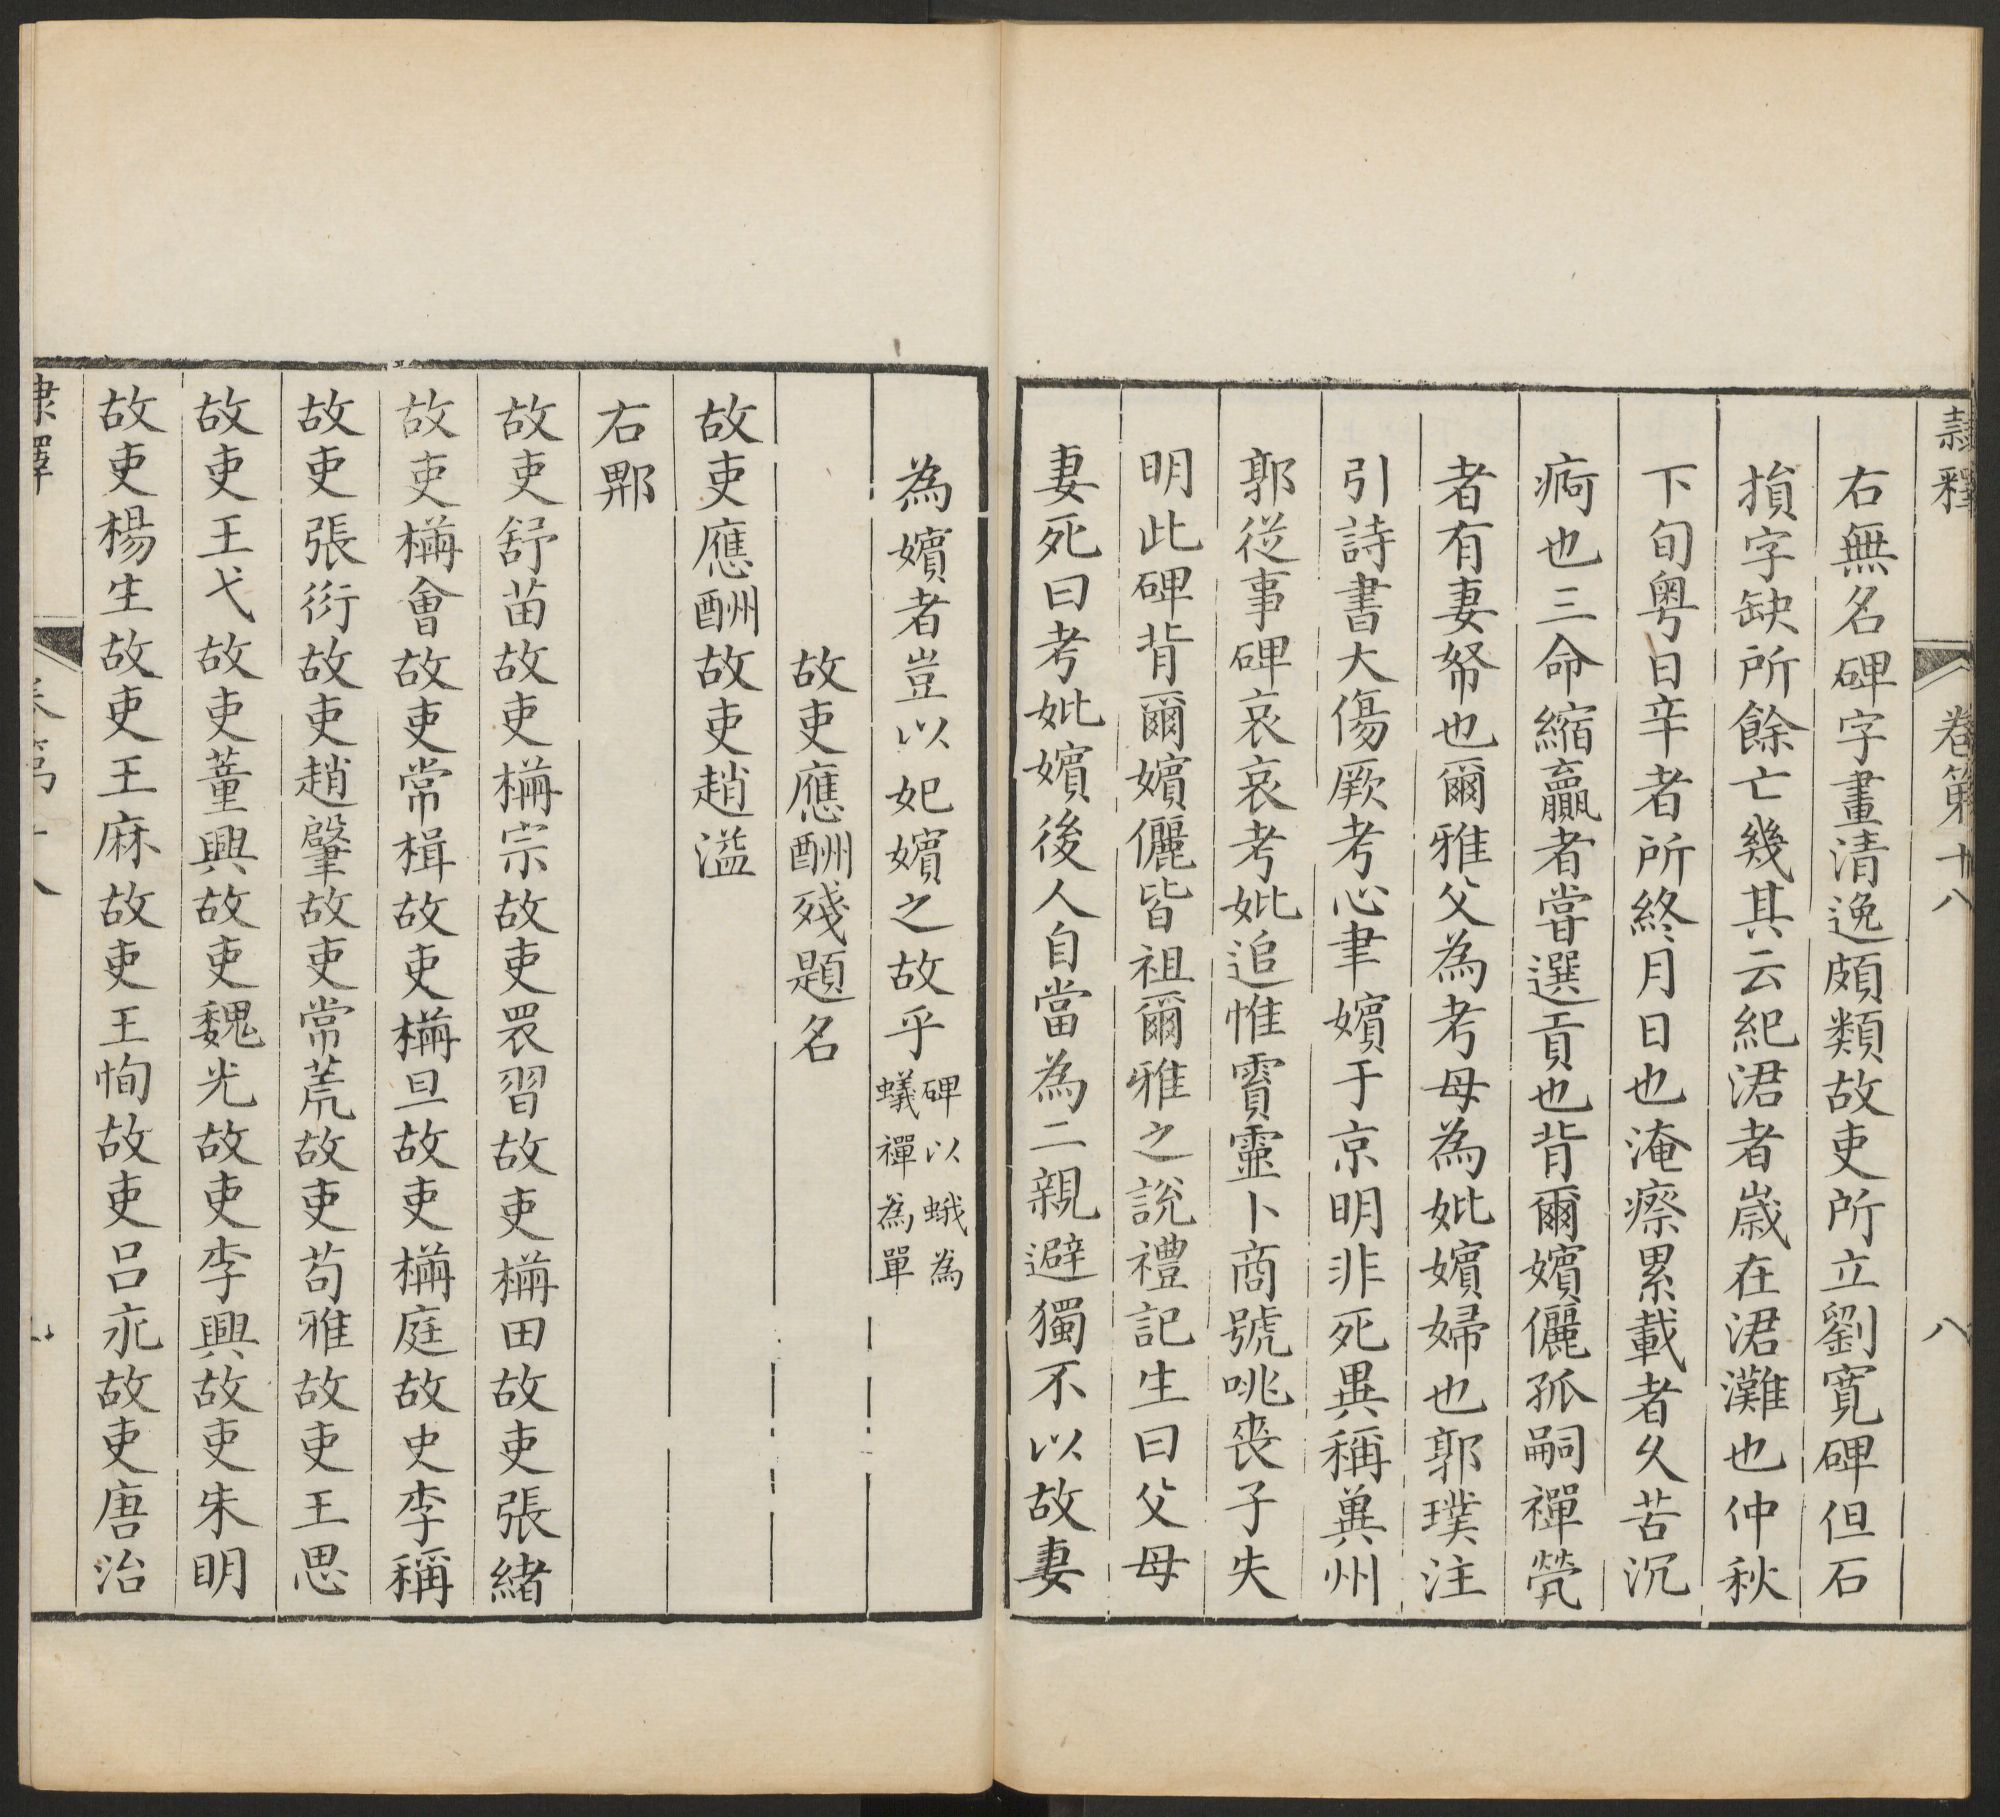 隸釋 卷第十八 八
右無名碑字畫清逸頗類故吏所立劉寬碑但石
損字缺所餘亡幾其云紀涒者歲在涒灘也仲秋
下旬粵日辛者所終月日也淹瘵累載者久苦沉
痾也三命縮贏者嘗選貢也背爾嬪儷孤嗣襌煢
者有妻帑也爾雅父為考母為妣嬪婦也郭璞注
引詩書大傷厥考心聿嬪于京明非死異稱兾州
郭從事碑哀哀考妣追惟霣靈卜商號咷喪子失
明此碑背爾嬪儷皆祖爾雅之說禮記生曰父母
妻死曰考妣嬪後人自當為二親避獨不以故妻
為嬪者豈以妃嬪之故乎碑以蛾為
蟻襌為單
故吏應酬殘題名
故吏應酬故吏趙溢
右郹
故吏舒苗故吏宗故吏畏習故吏田故吏張緒
故吏會故吏常楫故吏旦故吏庭故史李稱
故吏張衍故吏趙肈故吏常荒故吏苟雅故吏王思
故吏王弋故吏董興故吏魏光故吏李興故吏朱明
故吏楊生故吏王麻故吏王恂故吏吕永故吏唐治
隸釋 卷第十八